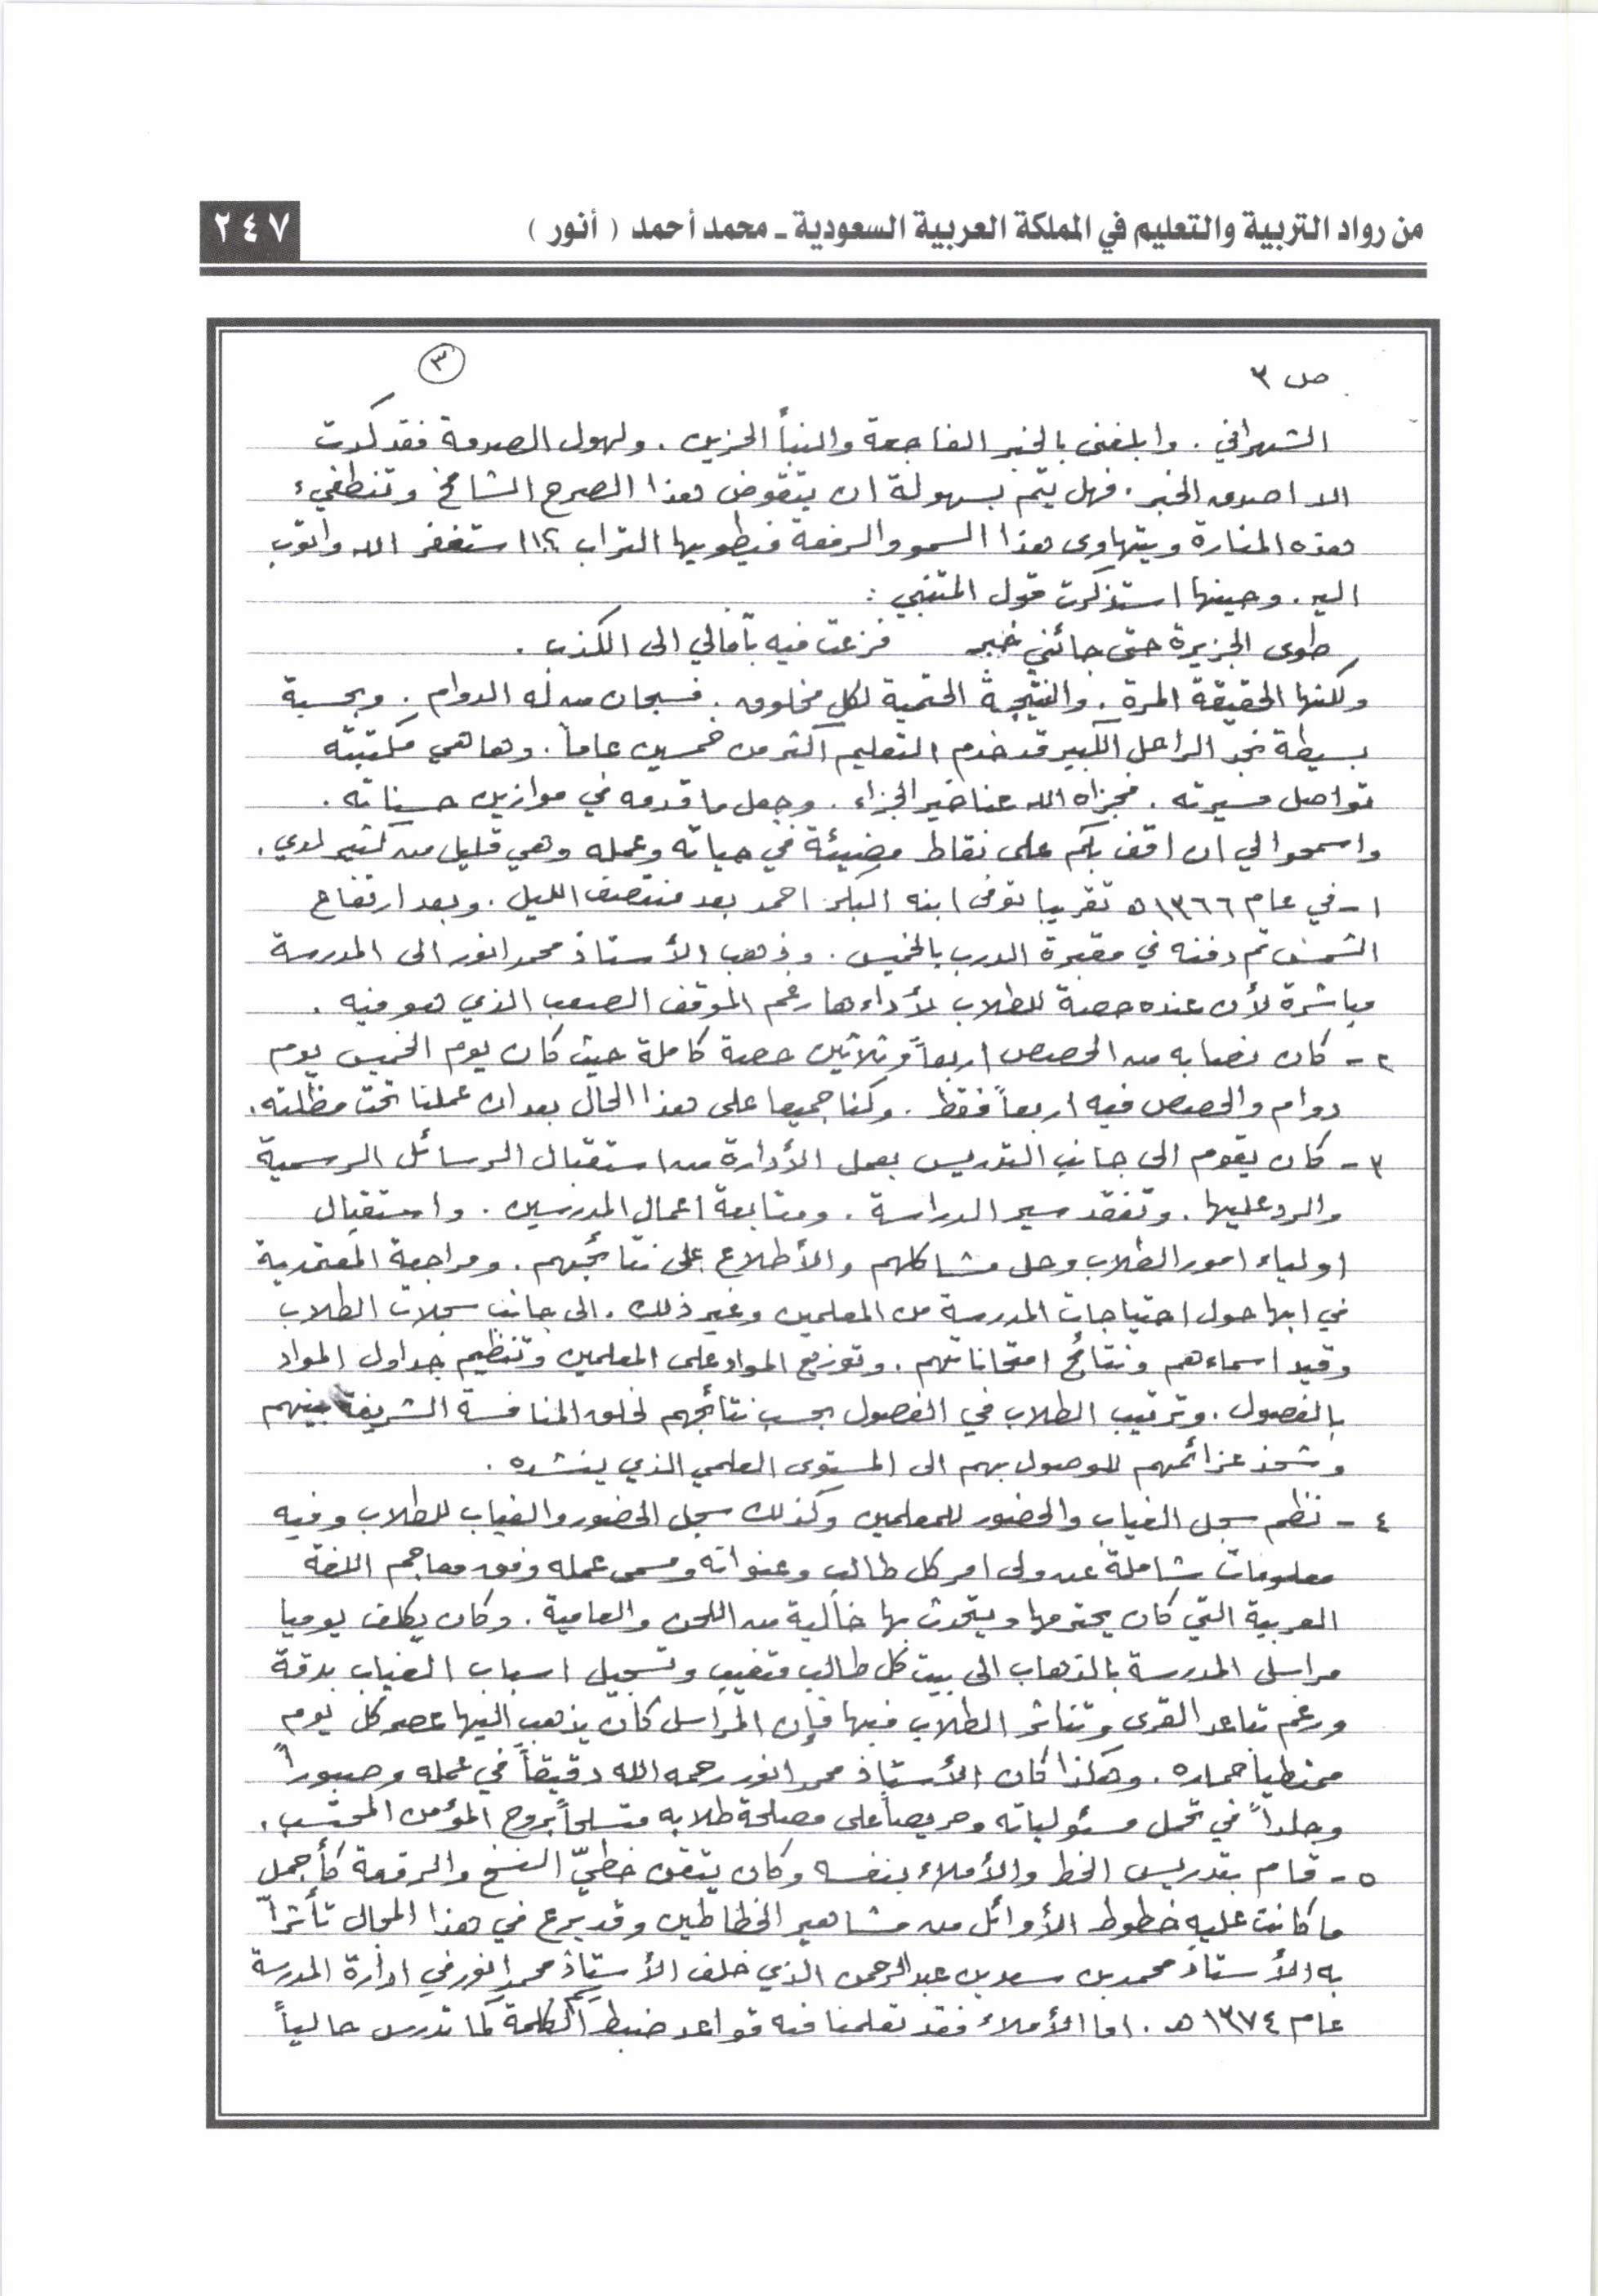 من رواد التربية والتعليم في المملكة العربية السعودية ـ محمد أحمد ( أنور )
٢٤٧
ص ٣
٣
الشهراني . وابلغني بالخبر الفاجعة والنبأ الحزين . ولهول الصدمة فقد كدت
الا اصدق الخبر . فهل يتم بسهولة ان يتقوض هذا الصرح الشامخ وتنطفيء
هذه المنارة ويتهاوى هذا السمو والرفعة فيطويها التراب ؟!! استغفر الله واتوب
اليه . وحينها استذكرت قول المتنبي :
طوى الجزيرة حتى جائني خبر فزعت فيه بآمالي الى الكذب .
ولكنها الحقيقة المرة . والنتيجة الحتمية لكل مخلوق . فسبحان من له الدوام . وبحسبة
بسيطة نجد الراحل الكبير قد خدم التعليم اكثر من خمسين عاماً . وها هي مكتبته
تواصل مسيرته . فجزاه الله عنا خير الجزاء . وجعل ما قدمه في موازين حسناته .
واسمحوا لي ان اقف بكم على نقاط مضيئة في حياته وعمله وهي قليل من كثير لدي .
١ - في عام ١٣٦٦ه تقريبا توفى ابنه البكر احمد بعد منتصف الليل . وبعد ارتفاع
الشمس تم دفنه في مقبرة الدرب بالخميس . وذهب الأستاذ محمد انور الى المدرسة
مباشرة لأن عنده حصة للطلاب لأداءها رغم الموقف الصعب الذي هو فيه .
٢ - كان نصابه من الحصص اربعاً وثلاثين حصة كاملة حيث كان يوم الخميس يوم
دوام والحصص فيه اربعاً فقط . وكنا جميعا على هذا الحال بعد ان عملنا تحت مظلته .
٣ - كان يقوم الى جانب التدريس بعمل الأدارة من استقبال الرسائل الرسمية
والرد عليها . وتفقد سير الدراسة . ومتابعة اعمال المدرسين . واستقبال
اولياء امور الطلاب وحل مشاكلهم والأطلاع على نتائجهم . ومراجعة المعتمدية
في ابها حول احتياجات المدرسة من المعلمين وغير ذلك . الى جانب سجلات الطلاب
وقيد اسماءهم ونتائج امتحاناتهم . وتوزيع المواد على المعلمين وتنظيم جداول المواد
بالفصول . وترتيب الطلاب في الفصول بحسب نتائجهم لخلق المنافسة الشريفة بينهم
وشحذ عزائمهم للوصول بهم الى المستوى العلمي الذي ينشده .
٤ - نظم سجل الغياب والحضور للمعلمين وكذلك سجل الحضور والغياب للطلاب وفيه
معلومات شاملة عن ولي امر كل طالب وعنوانه ومسمى عمله وفق معاجم اللغة
العربية التي كان يحترمها ويتحدث بها خالية من اللحن والعامية . وكان يكلف يوميا
مراسل المدرسة بالذهاب الى بيت كل طالب متغيب وتسجيل اسباب الغياب بدقة
ورغم تباعد القرى وتناثر الطلاب فيها فإن المراسل كان يذهب اليها عصر كل يوم
ممتطيا حماره . وهكذا كان الأستاذ محمد انور رحمه الله دقيقاً في عمله وصبوراً
وجلداً في تحمل مسئولياته وحريصاً على مصلحة طلابه متسلحاً بروح المؤمن المحتسب .
٥ - قام بتدريس الخط والأملاء بنفسه وكان يتقن خطيّ النسخ والرقعة كأجمل
ما كانت عليه خطوط الأوائل من مشاهير الخطاطين وقد برع في هذا المجال تأثراً
به الأستاذ محمد بن سعد بن عبدالرحمن الذي خلف الأستاذ محمد انور في ادارة المدرسة
عام ١٣٧٤ هـ . اما الأملاء فقد تعلمنا فيه قواعد ضبط الكلمة كما تدرس حالياً